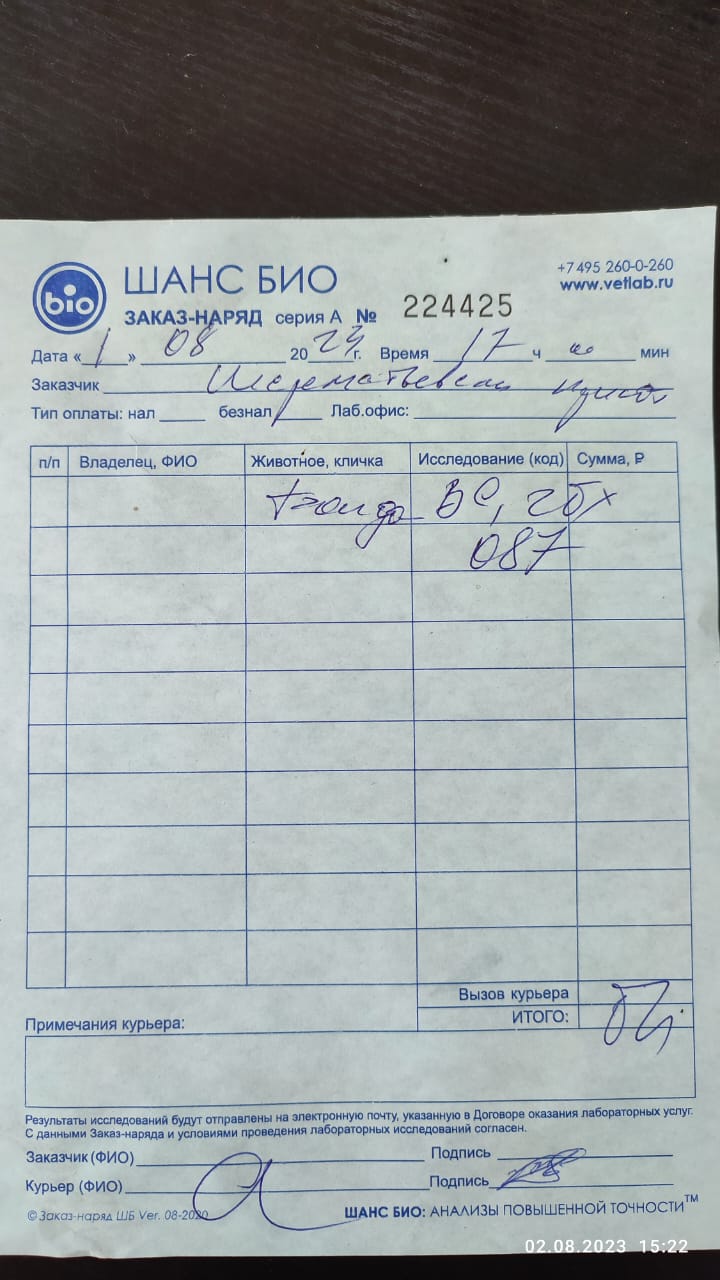 bio
ШАНС БИО
+7 495 260-0-260
www.vetlab.ru
ЗАКАЗ-НАРЯД серия А № 224425
Дата « 1 » 08 2023 г. Время 17 ч 00 мин
Заказчик
Тип оплаты: нал ____ безнал ____ Лаб.офис:
п/п Владелец, ФИО Животное, кличка Исследование (код) Сумма, ₽
087
Вызов курьера
ИТОГО:
Примечания курьера:
Результаты исследований будут отправлены на электронную почту, указанную в Договоре оказания лабораторных услуг.
С данными Заказ-наряда и условиями проведения лабораторных исследований согласен.
Заказчик (ФИО) Подпись
Курьер (ФИО) Подпись
© Заказ-наряд ШБ Ver. 08-2020 ШАНС БИО: АНАЛИЗЫ ПОВЫШЕННОЙ ТОЧНОСТИ™
02.08.2023 15:22